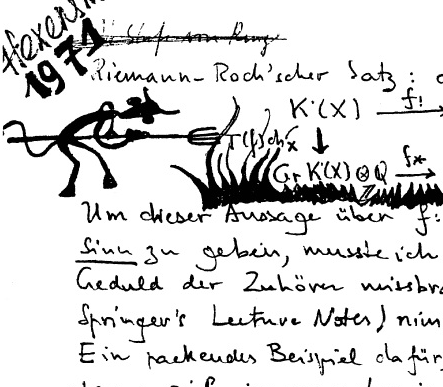 Hexen
1971
Riemann-Roch'scher Satz :
K·(X) f!
T(f)ch x
Gr K·(X) ⊗ Q f*
Um dieser Aussage über f:
Sinn zu geben, musste ich
Geduld der Zuhörer missbra
Springer's Lecture Notes) nim
Ein packendes Beispiel dafür,